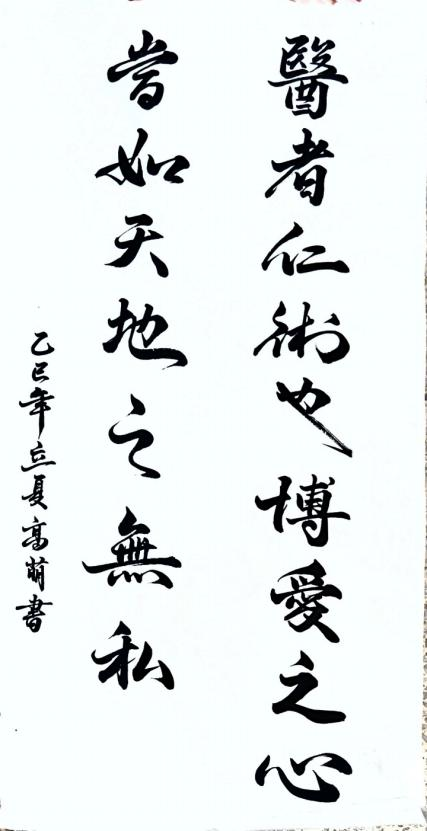 醫者仁術也博愛之心
當如天地之無私
乙巳年立夏高萌書